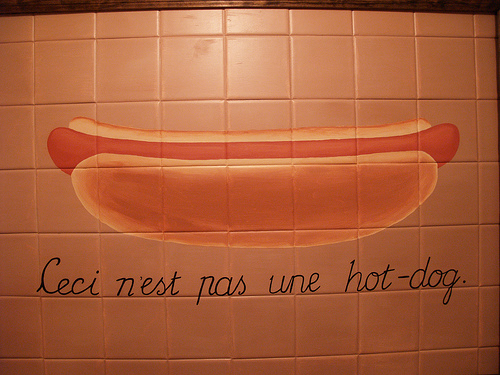 Ceci n'est pas une hot-dog.